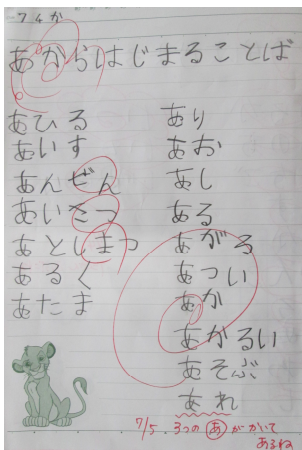 あからはじまることば
あひる
あいす
あんぜん
あいさつ
あとしまつ
あるく
あたま
あり
あお
あし
ある
あがる
あつい
あか
あかるい
あそぶ
あれ
7/5. 3つの あ が かいて
あるね